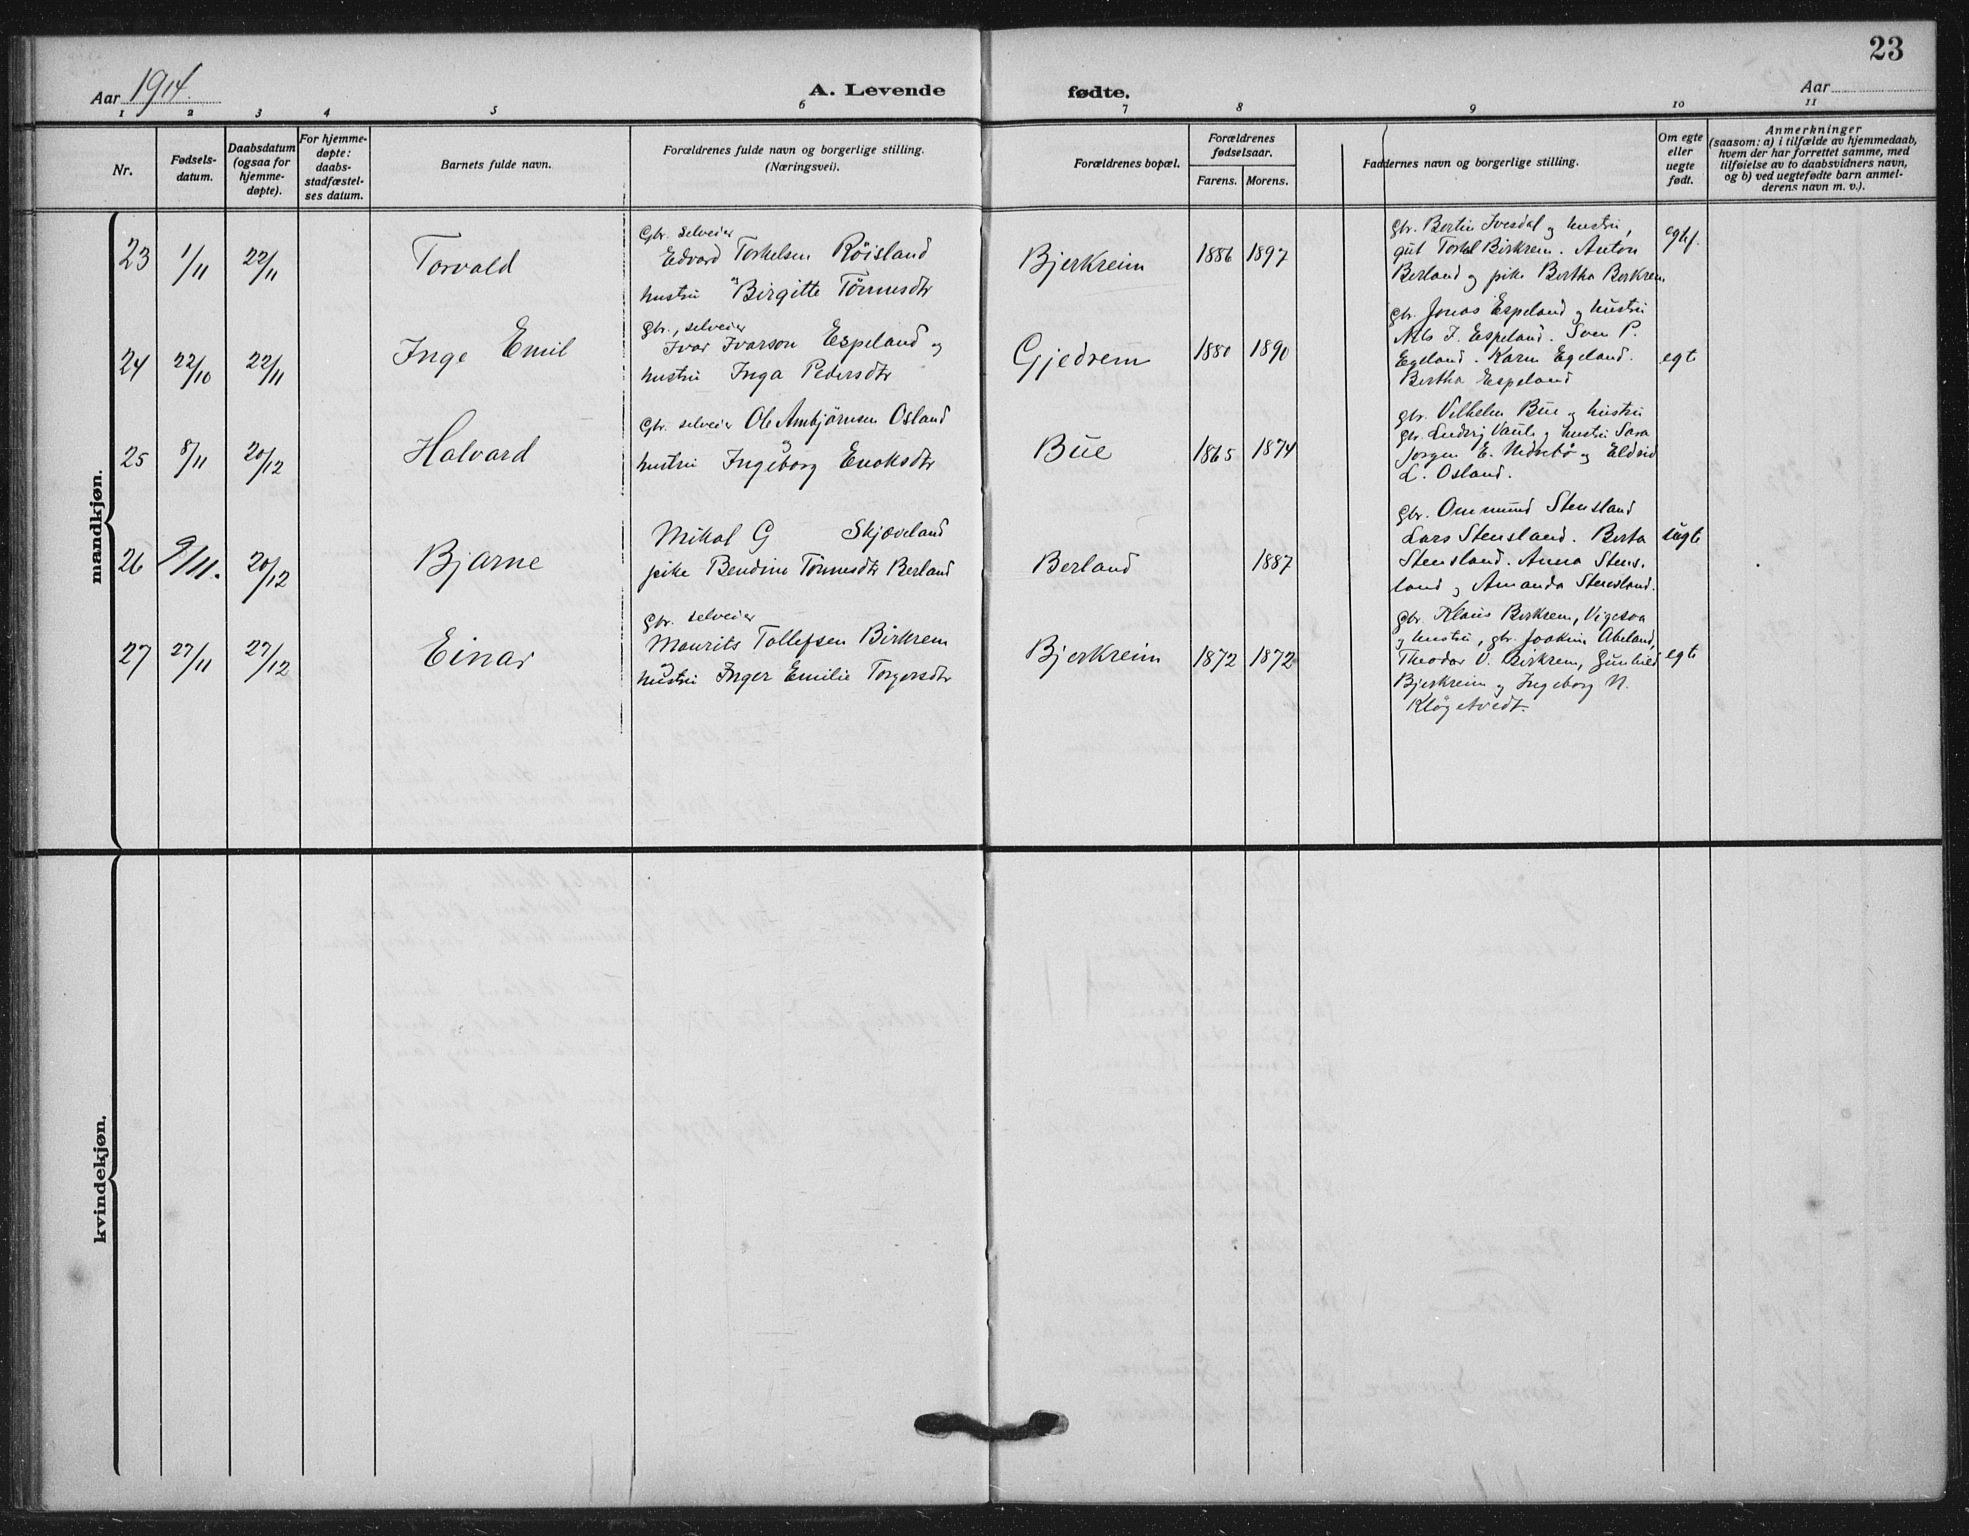 23
Aar 1914.
A. Levende fødte.
Aar
1 2 3 4 5 6 7 8 9 10 11
Nr.
Fødsels-
datum.
Daabsdatum
(ogsaa for
hjemme-
døpte).
For hjemme-
døpte:
daabs-
stadfæstel-
ses datum.
Barnets fulde navn.
Forældrenes fulde navn og borgerlige stilling.
(Næringsvei).
Forældrenes bopæl.
Forældrenes
fødselsaar.
Farens. Morens.
Faddernes navn og borgerlige stilling.
Om egte
eller
uegte
født.
Anmerkninger
(saasom: a) i tilfælde av hjemmedaab,
hvem der har forrettet samme, med
tilføielse av to daabsvidners navn,
og b) ved uegtefødte barn anmel-
derens navn m. v.).
mandkjøn.
23 1/11 22/11 Torvald
Gbr. selveier
Edvard Torkelsen Röisland
hustru Birgitte Tönnesdtr
Bjerkreim 1886 1897
gbr. Bertin Ivesdal og hustru,
gut Torkel Birkrem. Anton
Berland og pike Bertha Berkrem
egte
24 22/10 22/11 Inge Emil
Gbr., selveier
Ivar Ivarson Espeland og
hustru Inga Pedersdtr
Gjedrem 1880 1890
gbr. Jonas Espeland og hustru
Nils J. Espeland. Sven P.
Egeland. Karen Egeland.
Bertha Espeland
egte
25 8/11 20/12 Halvard
Gbr. selveier Ole Ambjörnsen Osland
hustru Ingeborg Enoksdtr
Bue 1865 1874
gbr. Vilhelm Bue og hustru
gbr. Ludvig Vaule og hustru Sara
Jørgen E. Nedrebø og Eldrid
L. Osland.
26 9/11. 20/12 Bjarne
Mikal G Skjæveland
pike Bendine Tönnesdtr Berland
Berland 1887
gbr. Ommund Stensland
Lars Stensland. Berta
Stensland. Anna Stens-
land og Amanda Stensland.
uegte
27 27/11 27/12 Einar
Gbr. selveier
Maurits Tollefsen Birkrem
hustru Inger Emilie Torgersdtr
Bjerkreim 1872 1872
gbr. Klaus Berkrem, Vigesaa
og hustru, gbr. Joakim Abeland,
Theodor V. Birkrem, Gunhild
Bjerkreim og Ingeborg N.
Kløgetvedt.
egte
kvindekjøn.